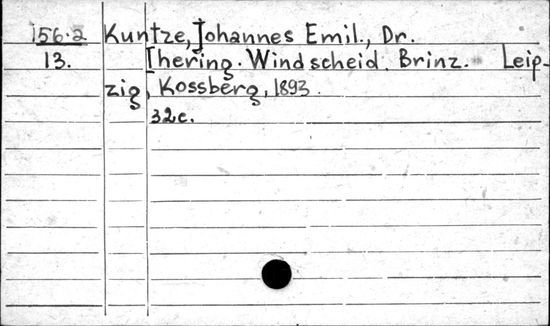 156.2 Kuntze, Johannes Emil., Dr.
13. Ihering. Windscheid. Brinz. Leip-
zig, Kossberg, 1893.
32c.